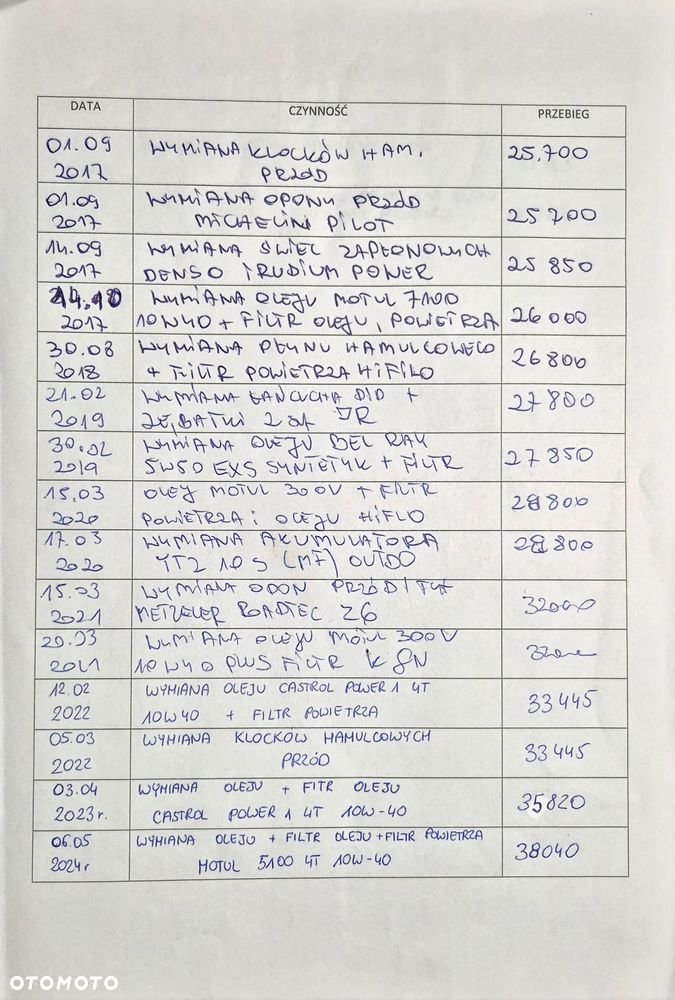 DATA CZYNNOŚĆ PRZEBIEG
01.09 WYMIANA KLOCKÓW HAM. 25.700
2017 PRZÓD
01.09 WYMIANA OPONY PRZÓD
2017 MICHELIN PILOT 25700
14.09 WYMIANA ŚWIEC ZAPŁONOWYCH
2017 DENSO IRUDIUM POWER 25 850
WYMIANA OLEJU MOTUL 7100
2017 10W40 + FILTR OLEJU, POWIETRZA 26000
30.08 WYMIANA PŁYNU HAMULCOWEGO
2018 + FILTR POWIETRZA HIFILO 26800
21.02 WYMIANA ŁAŃCUCHA DID + 27800
2019 ZĘBATKI 2 szt JR
30.02 WYMIANA OLEJU BEL RAY
2019 5W50 EXS SYNTETYK + FILTR 27850
15.03 OLEJ MOTUL 300V + FILTR
2020 POWIETRZA i OLEJU HIFLO 28800
17.03 WYMIANA AKUMULATORA 28800
2020 YTZ 10 S (MF) OUTDO
15.03 WYMIANA OPON PRZÓD I TYŁ
2021 METZELER ROADTEC Z6 32000
20.03 WYMIANA OLEJU MOTUL 300V
2021 10W40 PLUS FILTR K&N
12.02 WYMIANA OLEJU CASTROL POWER 1 4T
2022 10W40 + FILTR POWIETRZA 33445
05.03 WYMIANA KLOCKÓW HAMULCOWYCH
2022 PRZÓD 33445
03.04 WYMIANA OLEJU + FITR OLEJU
2023r. CASTROL POWER 1 4T 10W-40 35820
06.05 WYMIANA OLEJU + FILTR OLEJU + FILTR POWIETRZA
2024r MOTUL 5100 4T 10W-40 38040
OTOMOTO